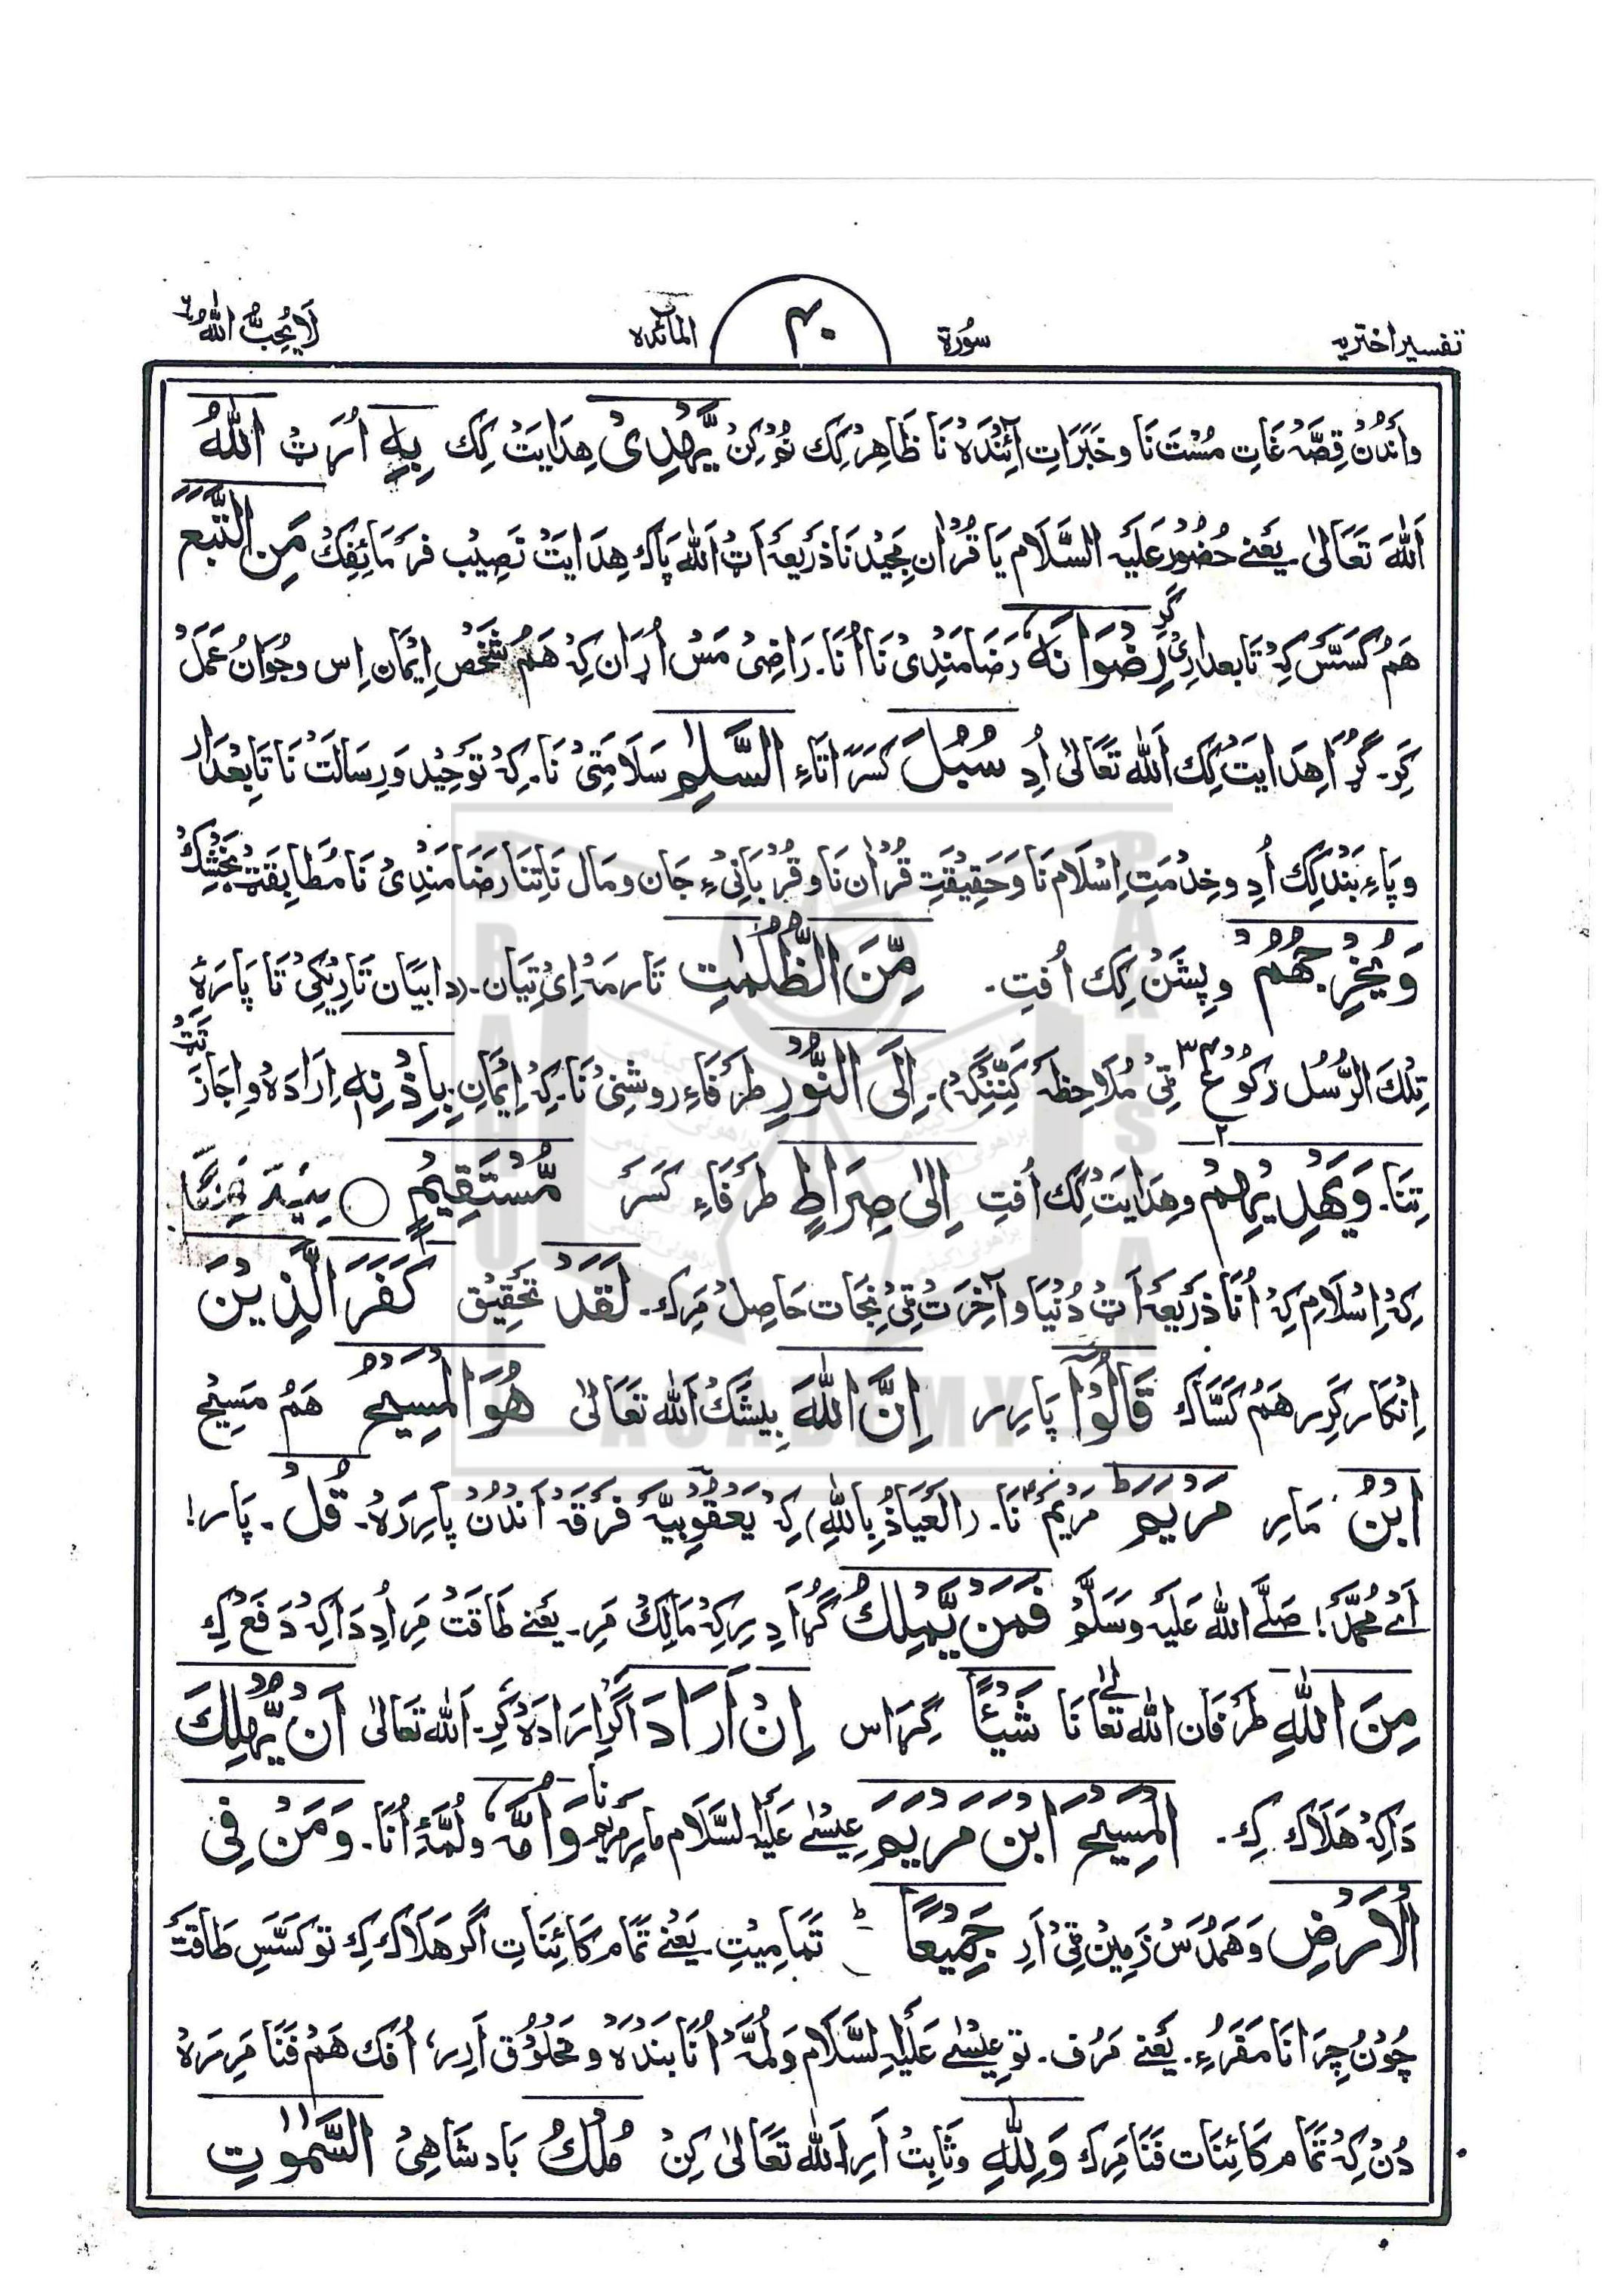 تفسیر اختریہ سُورۃ ۴۰ المآئدہ لَا یُحِبُّ اللّٰہُ ٦
وَاَنْدُنْ قِصَّہ غَاتِ مُسْتَ نَا وخَبَرَاتِ آئِنْدَہ نَا ظَاہِرْ کِک نُوْرکِنْ یَّهْدِیْ هِدَایَتْ کِک بِهِ اُرَٹْ اللّٰهُ
اَللّٰهَ تَعَالیٰ یَعْنے حُضُوْر عَلَیْہِ السَّلَام یَا قُرْاٰن مَجِیْد نَا ذَرِیْعَہ اَٹْ اَللّٰه پَاک هِدَایَتْ نَصِیْب فَرمَائِفِکْ مَنِ اتَّبَعَ
هَمُ کَسَّسْ کِہْ تَابعدارِیْ کَرِ رِضْوَانَهٗ رَضَامَنْدِیْ نَا اُنَا۔ رَاضِیْ مَسْ اُرَان کِہْ هَمُ شَخْص اِیْمَان اِس وجُوَانُ عَمَلْ
کَرِ۔ گُڑَا هِدَایَتْ کِک اَللّٰه تَعَالیٰ اُدِ سُبُلَ کَسَرَاتَاءِ السَّلٰمِ سَلَامَتِیْ نَا۔ کِہْ تَوْحِیْد وَرِسَالَتْ نَا تَابِعْدَار
وپَاءِبَنْد کِک اُدِ وخِدْمَتِ اِسْلَام نَا وَحَقِیْقَتِ قُرْاٰن نَا وقُرْبَانِیْءِ جَان ومَال نَا تِنَا رَضَامَنْدِیْ نَا مُطَابِقَتْ بَخْشِکْ
وَیُخْرِجُهُمْ وپِشَنْ کِک اُفتِ۔ مِّنَ الظُّلُمٰتِ تَارمَہْ اِیْ تِیَان۔ (دا بَیَان تَارِیْکِیْ تَا پَارَہْ
تِلْكَ الرُّسُل رَکُوْع ٣ ٹِیْ مُلَاحِظَہ کَنِّنْگِہْ)۔ اِلَی النُّوْرِ طَرَفَاءِ روشْنِیْ نَا۔ کِہْ اِیْمَانِ۔ بِاِذْنِهٖ اِرَادَہ واِجَازَتَٹْ
تِنَا۔ وَیَهْدِیْهِمْ وهِدَایَتْ کِک اُفتِ اِلٰی صِرَاطٍ طَرَفَاءِ کَسَرَ مُّسْتَقِیْمٍ ○
کِہْ اِسْلَام کِہْ اُنَا ذَرِیْعَہ اَٹْ دُنْیَا وآخِرَتْ ٹِیْ نِجَات حَاصِلْ مَرِک۔ لَقَدْ تَحْقِیْق کَفَرَ الَّذِیْنَ
اِنْکَار کَرِیر هَمُ کَسَّاک قَالُوْا پَارِیر اِنَّ اللّٰهَ بِیشَکْ اَللّٰه تَعَالیٰ هُوَ الْمَسِیْحُ هَمُ مَسِیْح
ابْنُ مَار مَرْیَمَ مَرْیَمْ نَا۔ (اَلْعَیَاذُ بِاللّٰهِ) کِہْ یَعْقُوْبِیَّہ فَرْقَہ اَنْدُنْ پَارِرَہْ۔ قُلْ۔ پَار!
اَے مُحَمَّدؐ! صَلَّے اللّٰه عَلَیْه وَسَلَّمْ فَمَنْ یَّمْلِكُ گُڑَا دِیر کِہْ مَالِکْ مَرِ۔ یَعْنے طَاقَتْ مَرِ اُدِ دَاکِہْ دَفَعْ کِ
مِنَ اللّٰهِ طَرَفَان اللّٰه تَعَالٰے نَا شَیْئًا گِڑَاس اِنْ اَرَادَ اَگَر اِرَادَہْ کَرِ۔ اَللّٰه تَعَالیٰ اَنْ یُّهْلِكَ
دَاکِہْ هَلَاک کِ۔ الْمَسِیْحَ ابْنَ مَرْیَمَ عِیْسٰے عَلَیْهِ السَّلَام مار مَرْیَم نا وَاُمَّهٗ ولُمَّہءِ اُنَا۔ وَمَنْ فِی
الْاَرْضِ وَهَمْدَسْ زَمِیْن ٹِیْ اَرِ جَمِیْعًا ط تَمَامِیْتِ۔ یَعْنے تَمَام کَائِنَاتِ اَگَر هَلَاک کِ تو کَسَّسِ طَاقَتْ
چُوْنُ چِرَا نَا مَفَرءِ۔ یَعْنے مَرُف۔ تو عِیْسٰے عَلَیْهِ السَّلَام وَلُمَّہْ اُنَا بَنْدَہ ومَخْلُوْق اَرِر، اُفک هَمْ فَنَا مَرِرَہْ
دُنْ کِہْ تَمَام کَائِنَات فَنَا مَرِک وَلِلّٰهِ وثَابِتْ اَرِ اَللّٰه تَعَالیٰ کِنْ مُلْكُ بَادشَاهِیْ السَّمٰوٰتِ
BRAHUI ACADEMY PAKISTAN